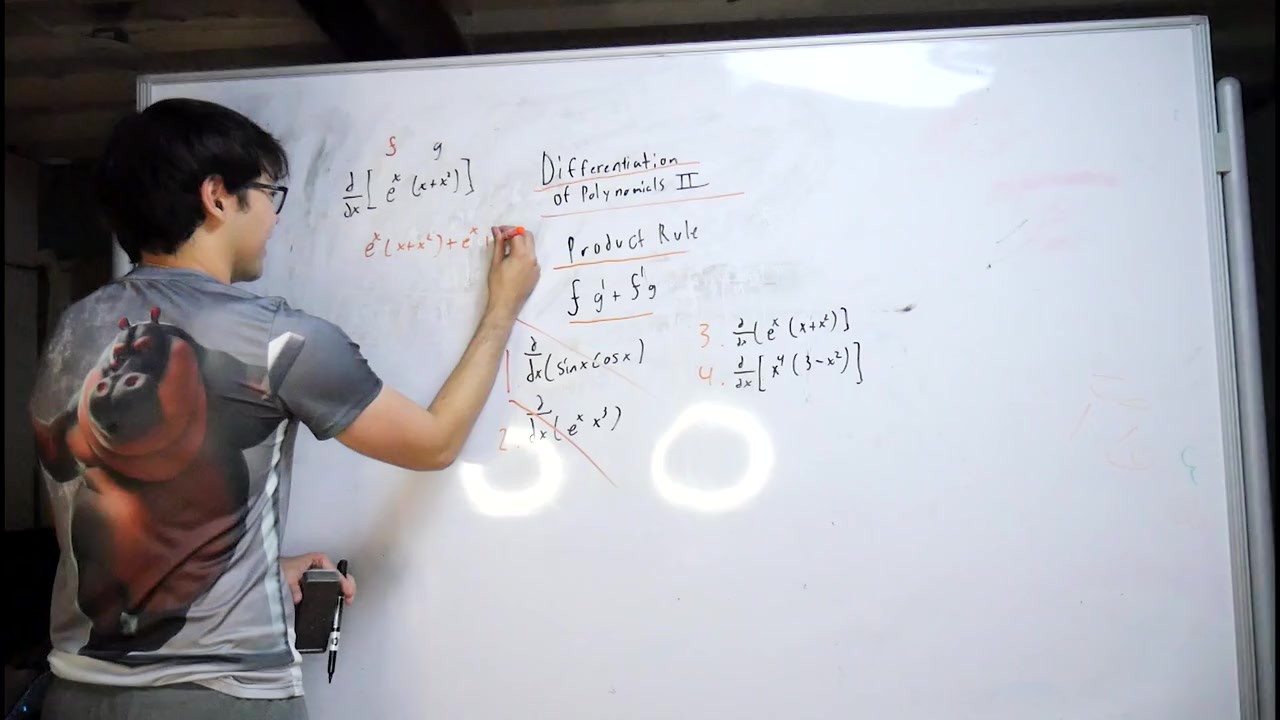 f g
d/dx [ eˣ (x+x²) ]
eˣ (x+x²) + eˣ
Differentiation
of Polynomials II
Product Rule
f g' + f' g
1 d/dx (sinx cosx)
2. d/dx ( eˣ x³ )
3. d/dx ( eˣ (x+x²) ]
4. d/dx [ x⁴ (3-x²) ]